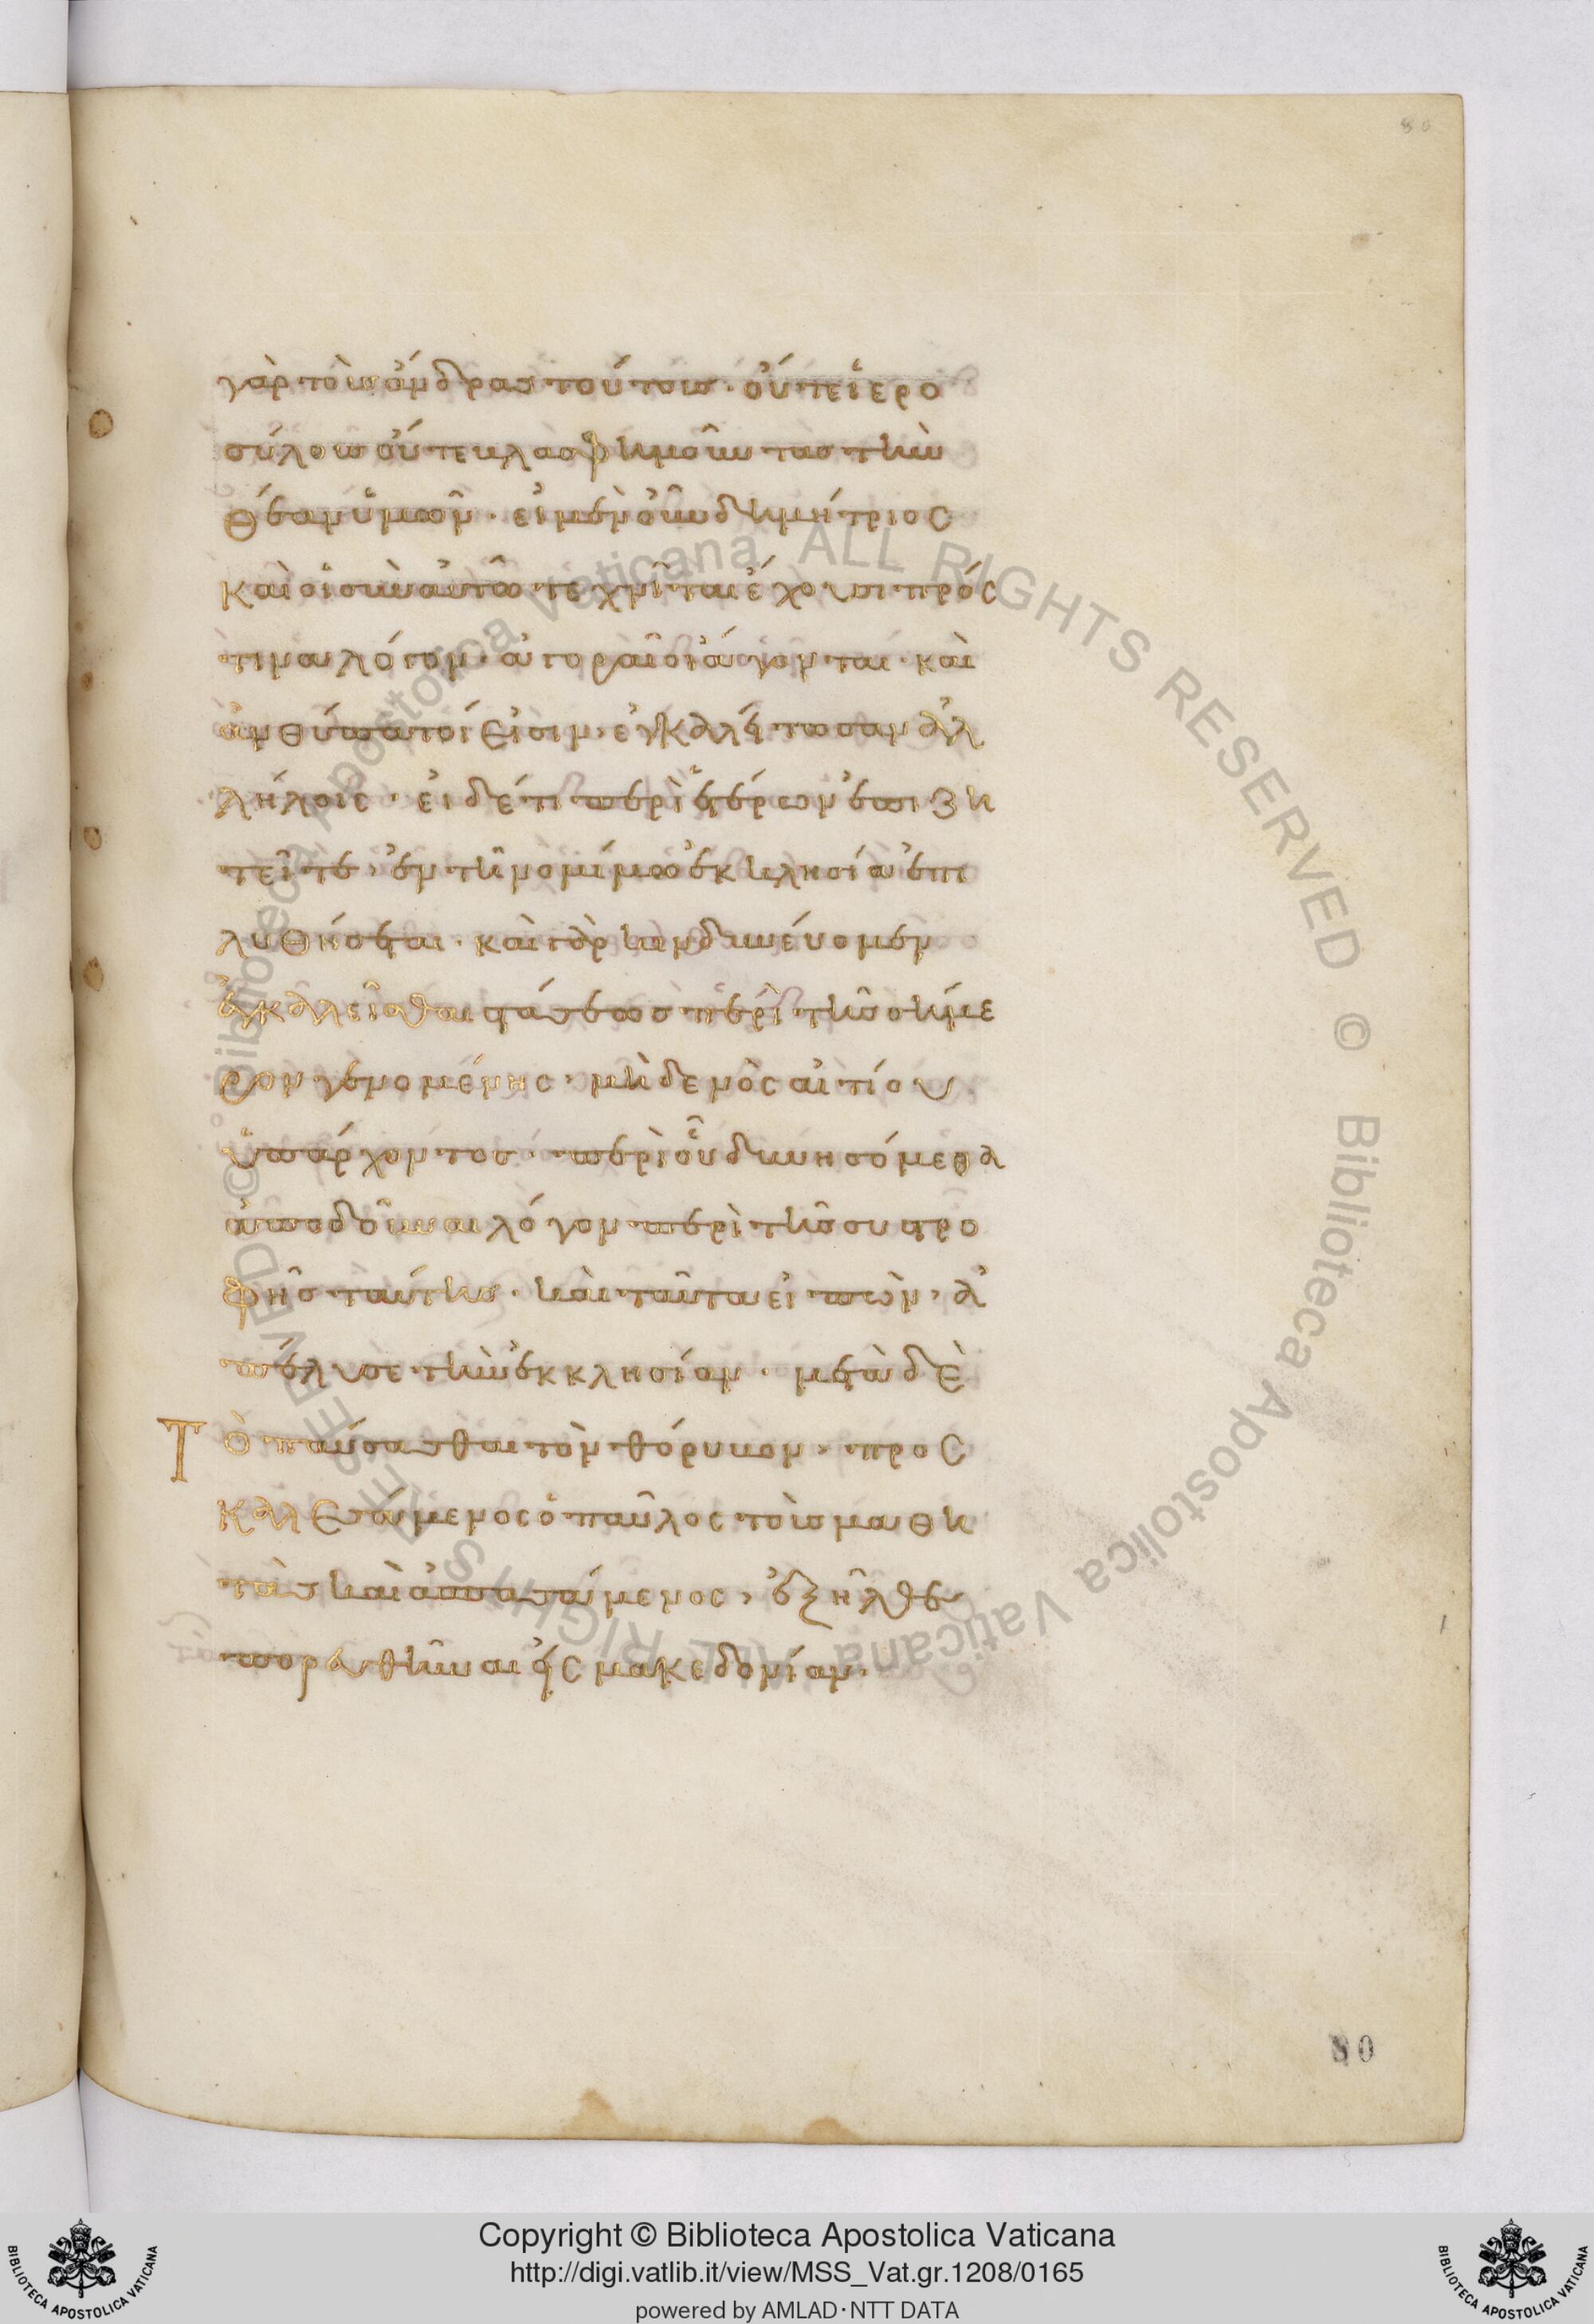 80
γὰρ τοὺς ἄνδρας τούτους· οὔτε ἱερο
σύλους οὔτε βλασφημοῦντας τὴν
θεὰν ὑμῶν· εἰ μὲν οὖν δημήτριος
καὶ οἱ σὺν αὐτῶ τεχνῖται ἔχουσι πρός
τινα λόγον· ἀγοραῖοι ἄγονται· καὶ
ἀνθύπατοί εἰσιν· ἐγκαλείτωσαν ἀλ
λήλοις· εἰ δέ τι περὶ ἑτέρων ἐπιζη
τεῖτε· ἐν τῆ νομίμω ἐκκλησία ἐπι
λυθήσεται· καὶ γὰρ κινδυνεύομεν
ἐγκαλεῖσθαι στάσεως περὶ τῆς σήμε
ρον γενομένης· μηδενὸς αἰτίου
ὑπάρχοντος· περὶ οὗ δυνησόμεθα
ἀποδοῦναι λόγον περὶ τῆς συστρο
φῆς ταύτης· καὶ ταῦτα εἰπὼν, ἀ
πέλυσε τὴν ἐκκλησίαν· μετὰ δὲ
Τὸ παύσασθαι τὸν θόρυβον, προς
καλεσάμενος ὁ παῦλος τοὺς μαθη
τὰς καὶ ἀσπασάμενος, ἐξῆλθε
πορευθῆναι εἰς μακεδονίαν·
80
© Biblioteca Apostolica Vaticana ALL RIGHTS RESERVED © Biblioteca Apostolica Vaticana ALL RIGHTS RESERVED
Copyright © Biblioteca Apostolica Vaticana
http://digi.vatlib.it/view/MSS_Vat.gr.1208/0165
powered by AMLAD·NTT DATA
BIBLIOTECA APOSTOLICA VATICANA
BIBLIOTECA APOSTOLICA VATICANA